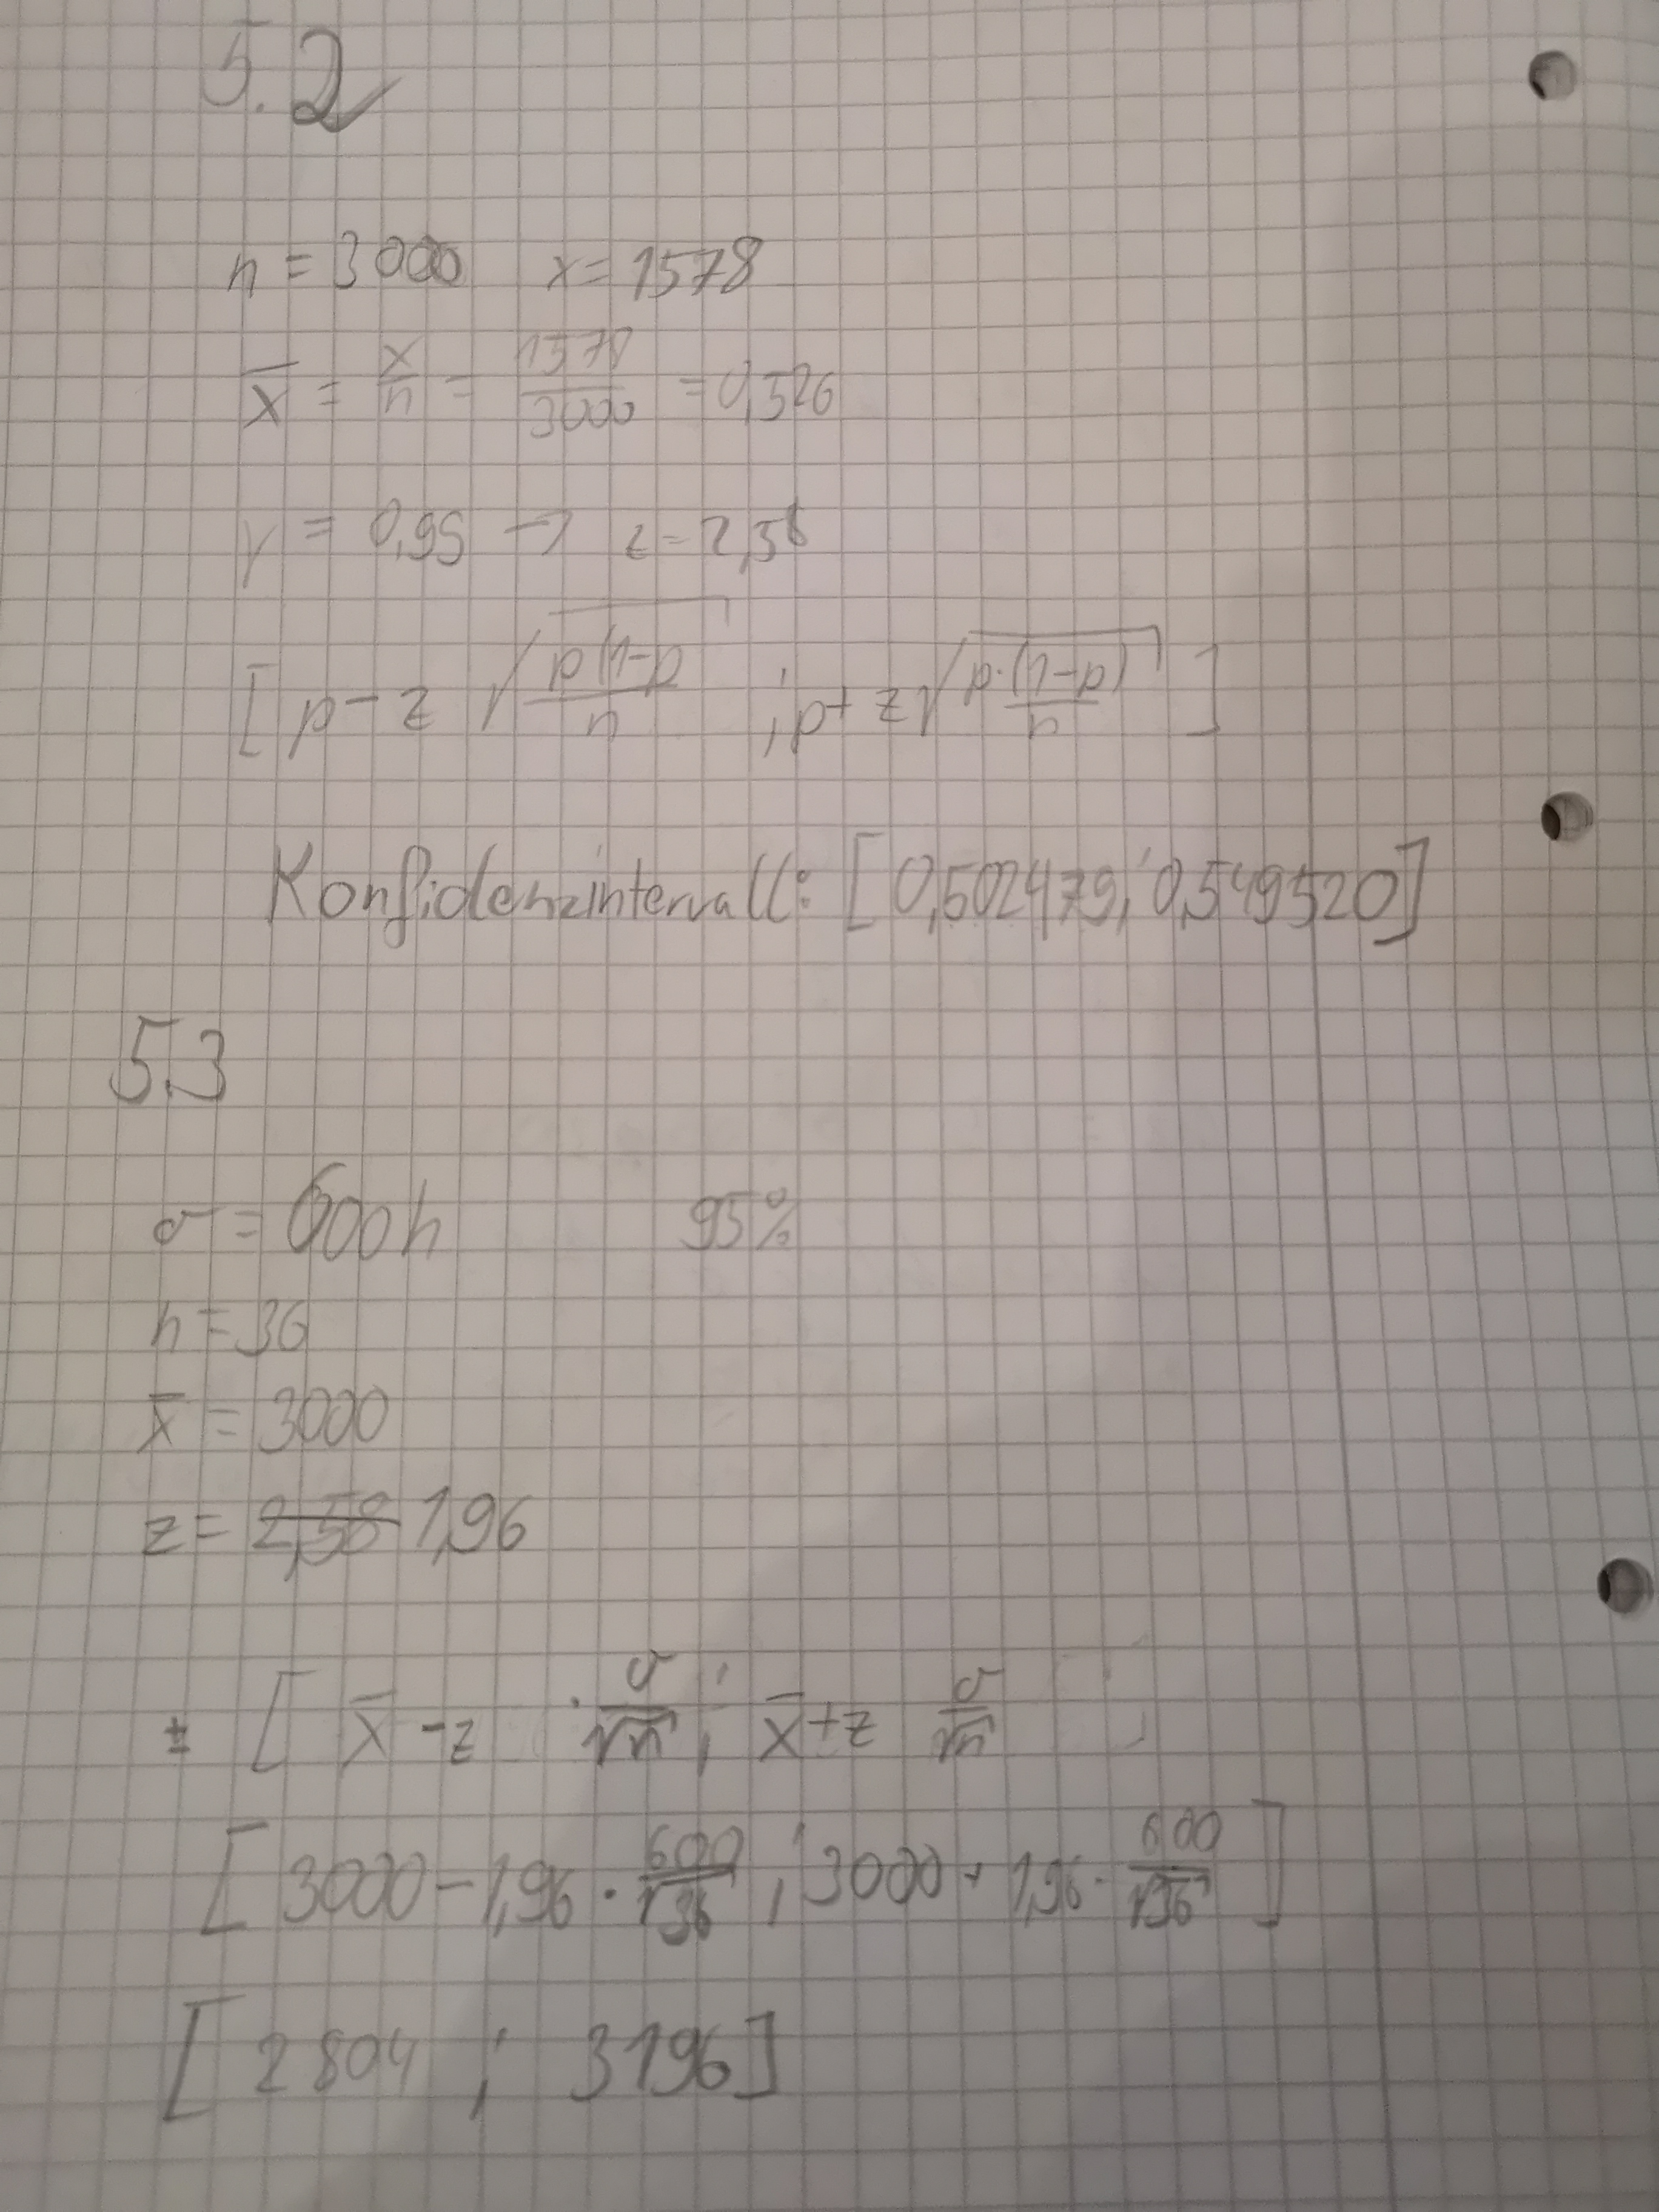 5.2
n = 3000 x = 1578
x̄ = x/n = 1578/3000 = 0,526
γ = 0,99 → z = 2,58
[ p - z √(p(1-p)/n) ; p + z √(p·(1-p)/n) ]
Konfidenzintervall: [0,502479; 0,549520]
5.3
σ = 600h 95%
n = 36
x̄ = 3000
z = ~~2,58~~ 1,96
± [ x̄ - z · σ/√n ; x̄ + z σ/√n ]
[ 3000 - 1,96 · 600/√36 ; 3000 + 1,96 · 600/√36 ]
[ 2804 ; 3196 ]